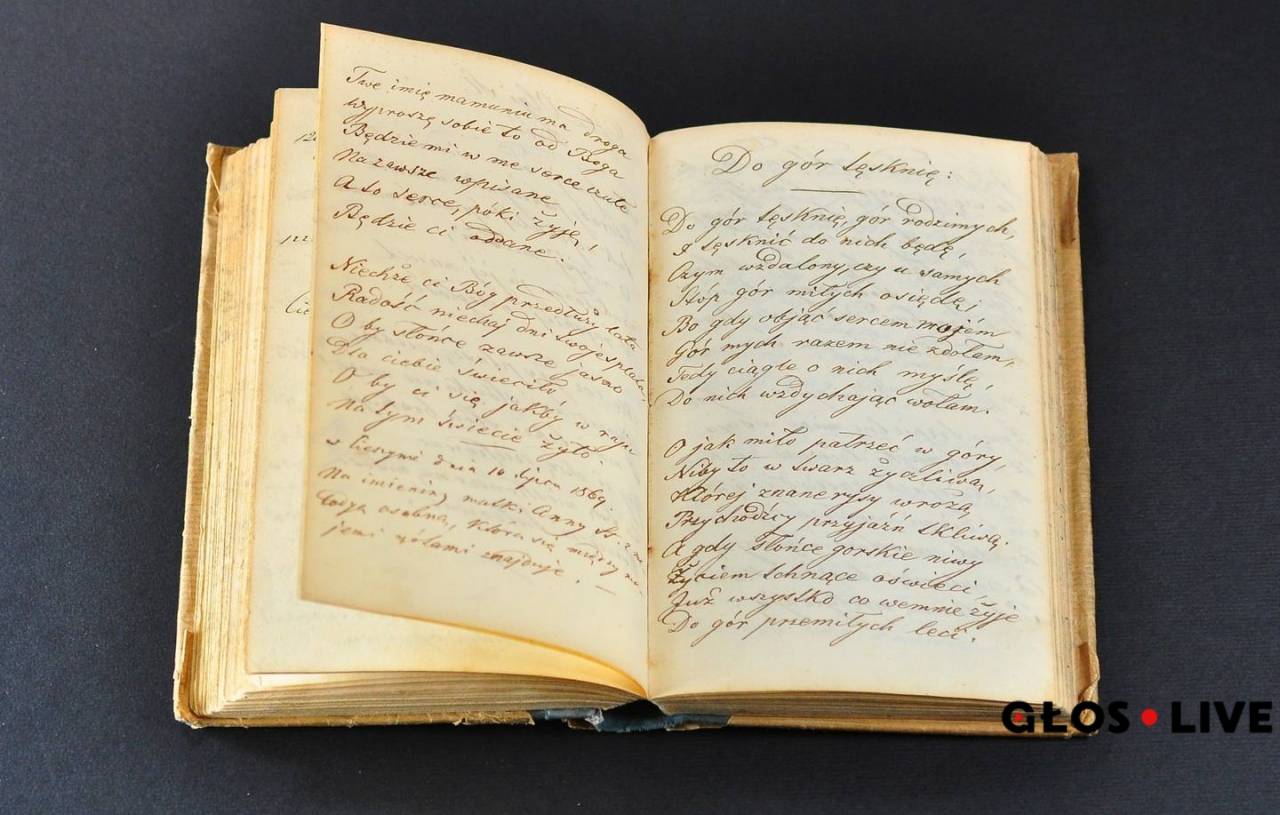 Twe imię mamuniu ma droga
Wyproszę sobie to od Boga
Będzie mi w me serce czułe
Na zawsze wpisane
A to serce, póki żyję,
Będzie ci oddane.
Niechże ci Bóg przedłuży lata
Radość niechaj dni swoje splata,
O by słońce zawsze jasno
Dla ciebie świeciło
O by ci się jakby w raju
Na tym świecie żyło.
w Cieszynie dnia 16 lipca 1869.
Na imieniny matki Anny
osobna, która się między
jemi znajduje.
Do gór tęsknię:
Do gór tęsknię, gór rodzimych,
I tęsknić do nich będę,
Czym wzdalony, czy u samych
Stóp gór miłych osiędę;
Bo gdy objąć sercem mojém
Gór mych razem nie zdołam,
Tedy ciągle o nich myślę,
Do nich wzdychając wołam.
O jak miło patrzeć w góry,
Niby to w twarz życzliwą,
Której znane rysy wrożą
Przychodźcy przyjaźń tkliwą.
A gdy słońce gorskie niwy
Życiem schnące oświeci,
Już wszystko co wemnie żyje
Do gór przemiłych leci.
GŁOS LIVE